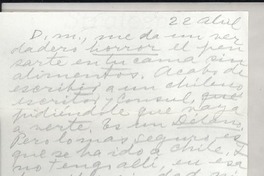 22 Abril
D. m., me da un ver
dadero horror el pen
sarte en tu cama sin
alimentos. Acabo de
escribir a un chileno
escritor, consul,
pidiendole que vaya
a verte. Es un Délano.
Pero lo mas seguro es
que se ha ido a Chile. I
no tengo allí, en esa